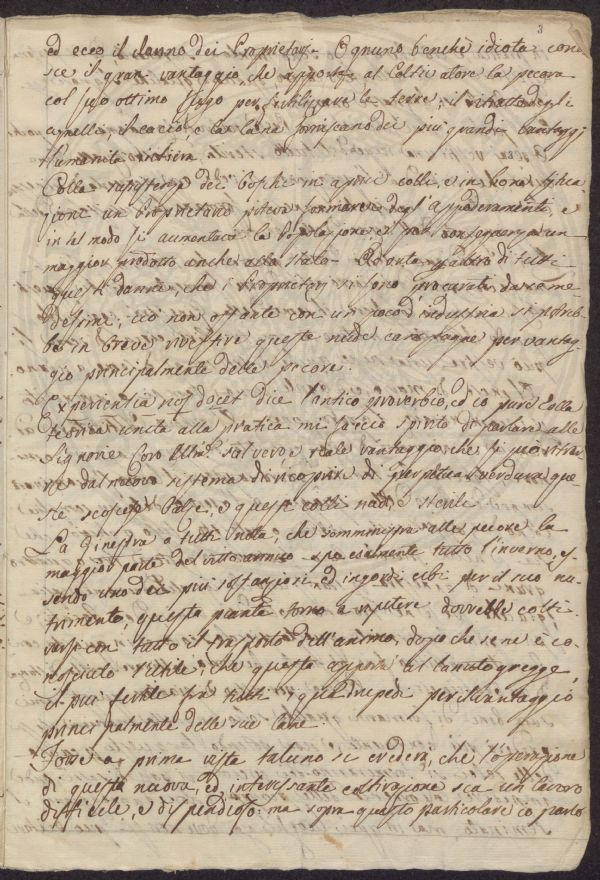 3
ed ecco il danno dei Proprietarj. Ognuno benchè idiota cono
sce il gran vantaggio, che apporta al Coltivatore la pecora
col suo ottimo sugo per fertilizzare le terre; il ritratto degli
agnelli, il cacio, e la lana forniscono dei più grandi vantaggi
Colla esistenza dei Boschi in aprici colli, e in bona
un Proprietario poteva formare degl'appoderamenti, e
in tel modo si aumentava la Popolazione e per conseguenza un
maggior prodotto anche allo Stato. Ad onta però di tutti
questi danni, che i Proprietarj si sono procurati da se me
desimi, ciò non ostante con un poco d'industria si potreb
be in breve rivestire queste nude campagne per vantag
gio principalmente delle pecore.
Experientia docet dice l'antico proverbio, ed io pure colla
teorica unita alla pratica mi faccio spirito di parlare alle
Signorie Loro Illme sul vero e reale vantaggio che si può ritrar
re dal nuovo sistema di ricoprire di perpetua verdura que
ste scoscese Balze, e questi colli nudi, e sterili.
La Ginestra a tutti nota, che somministra alle pecore la
maggior parte del vitto annuo specialmente tutto l'inverno, es
sendo uno dei più sostanziosi, ed ingordi cibi per il suo nu
trimento, questa pianta torno a ripetere dovrebbe colti
varsi con tutto il trasporto dell'animo, dopo che se ne è co
nosciuto l'utile, che questa apporta al lanuto gregge,
il più fertile fra tutti i quadrupedi per il vantaggio
principalmente delle sue lane.
Forse a prima vista taluno si crederà, che l'operazione
di questa nuova, ed interessante coltivazione sia un lavoro
difficile, e dispendioso: ma sopra questo particolare io parlo